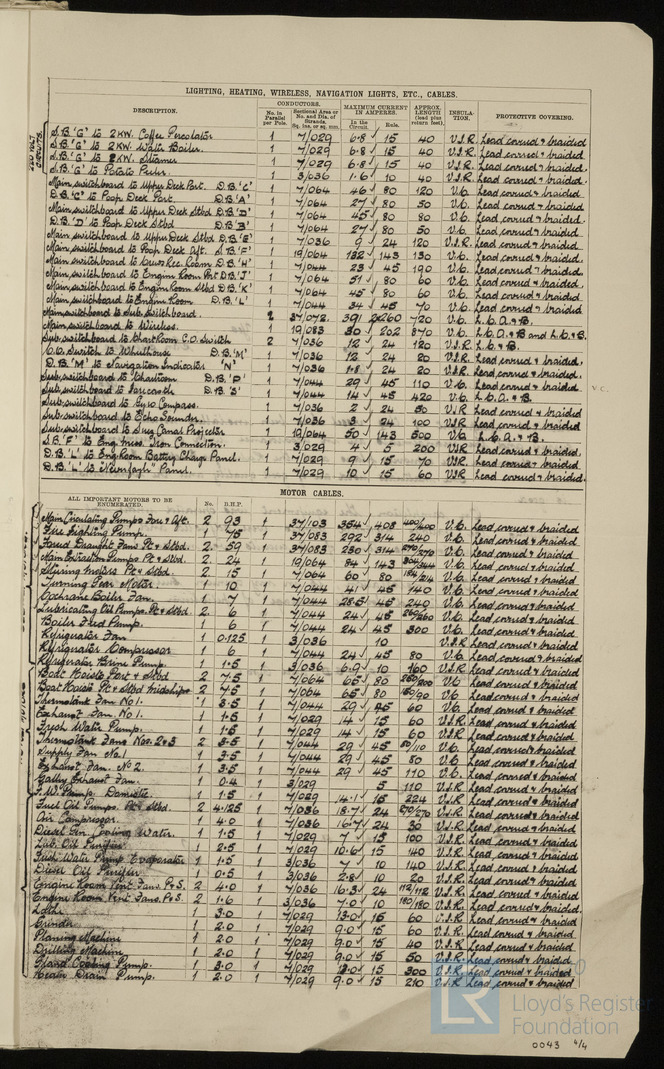 LIGHTING, HEATING, WIRELESS, NAVIGATION LIGHTS, ETC., CABLES.
DESCRIPTION. CONDUCTORS. No. in Parallel per Pole. Sectional Area or No. and Dia. of Strands. Sq. ins. or sq. mm. MAXIMUM CURRENT IN AMPERES. In the Circuit. Rule. APPROX. LENGTH (lead plus return feet). INSULATION. PROTECTIVE COVERING.
220 VOLT CIRCUITS.
S.B. 'G' to 2KW. Coffee Percolator 1 7/029 6.8 ✓ 15 40 V.I.R. Lead covrd & braided
S.B. 'G' to 2KW Water Boiler. 1 7/029 6.8 ✓ 15 40 V.I.R. Lead covrd & braided
S.B. 'G' to 2KW. Steamer 1 7/029 6.8 ✓ 15 40 V.I.R. Lead covrd & braided
S.B. 'G' to Potato Peeler. 1 3/036 1.6 ✓ 10 40 V.I.R. Lead covrd & braided
Main switchboard to Upper Deck Port. D.B. 'C' 1 7/064 46 ✓ 80 120 V.C. Lead covrd & braided
D.B. 'C' to Poop Deck Port D.B. 'A' 1 7/064 27 ✓ 80 50 V.C. Lead covrd & braided
Main switchboard to Upper Deck Stbd D.B. 'D' 1 7/064 45 ✓ 80 80 V.C. Lead covrd & braided
D.B. 'D' to Poop Deck Stbd D.B. 'B' 1 7/064 27 ✓ 80 50 V.C. Lead covrd & braided
Main switchboard to Upper Deck Stbd D.B. 'E' 1 7/036 9 ✓ 24 120 V.I.R. Lead covrd & braided
Main switchboard to Poop Deck Aft. S.B. 'F' 1 19/064 132 ✓ 143 130 V.C. Lead covrd & braided
Main switchboard to Crew's Rec. Room D.B. 'H' 1 7/044 23 ✓ 45 190 V.C. Lead covrd & braided
Main switchboard to Engine Room Port D.B. 'J' 1 7/064 51 ✓ 80 60 V.C. Lead covrd & braided
Main switchboard to Engine Room Stbd D.B. 'K' 1 7/064 45 ✓ 80 60 V.C. Lead covrd & braided
Main switchboard to Engine Room D.B. 'L' 1 7/044 34 ✓ 45 70 V.C. Lead covrd & braided
Main switchboard to Sub. switchboard. 2 37/072. 391 2x260 720 V.C. L.C.A. & B.
Main switchboard to Wireless. 1 19/083 30 ✓ 202 870 V.C. L.C.A. & B and L.C. & B.
Sub. switchboard to Chart Room C.O. Switch 2 7/036 12 ✓ 24 120 V.I.R. L.C. & B.
C.O. Switch to Wheelhouse D.B. 'M' 1 7/036 12 ✓ 24 20 V.I.R. Lead covrd & braided.
D.B. 'M' to Navigation Indicator 'N' 1 7/036 1.8 ✓ 24 20 V.I.R. Lead covrd & braided.
Sub. switchboard to Chartroom D.B. 'P' 1 7/044 29 ✓ 45 110 V.C. Lead covrd & braided
Sub. switchboard to Forecastle D.B. 'S' 1 7/044 14 ✓ 45 420 V.C. L.C.A. & B. V.C.
Sub. switchboard to Gyro Compass. 1 7/036 2 ✓ 24 50 V.I.R Lead covrd & braided
Sub. switchboard to Echo Sounder. 1 7/036 3 ✓ 24 100 V.I.R Lead covrd & braided
Sub. switchboard to Suez Canal Projector 1 19/064 50 ✓ 143 500 V.C. L.C.A. & B.
S.B. 'F' to Eng. Mess. Iron Connection. 1 3/029 4 ✓ 5 200 V.I.R Lead covrd & braided
D.B. 'L' to Eng. Room Battery Charge Panel. 1 7/029 9 ✓ 15 70 V.I.R. Lead covrd & braided
D.B. 'L' to Panel. 1 7/029 10 ✓ 15 60 V.I.R. Lead covrd & braided
MOTOR CABLES.
ALL IMPORTANT MOTORS TO BE ENUMERATED. No. B.H.P.
Main Circulating Pumps Fore & Aft. 2 93 1 37/103 354 ✓ 408 400/400 V.C. Lead covrd & braided
Fire Fighting Pump. 1 75 1 37/083 292 ✓ 314 240 V.C. Lead covrd & braided
Forced Draught Fans Pt & Stbd. 2 59 1 37/083 230 ✓ 314 270/270 V.C. Lead covrd & braided
Main Extraction Pumps Pt & Stbd 2 24 1 19/064 94 ✓ 143 304/344 V.C. Lead covrd & braided
Steering Motors Pt & Stbd 2 15 1 7/064 60 ✓ 80 184/214 V.C. Lead covrd & braided
Turning Gear Motor. 1 10 1 7/044 41 ✓ 45 140 V.C. Lead covrd & braided
Cochrane Boiler Fan. 1 7 1 7/044 28.5 ✓ 45 240 V.C. Lead covrd & braided
Lubricating Oil Pumps Pt & Stbd. 2 6 1 7/044 24 ✓ 45 260/260 V.C. Lead covrd & braided
Boiler Feed Pump. 1 6 1 7/044 24 ✓ 45 300 V.C. Lead covrd & braided
Refrigerator Fan 1 0.125 1 3/036 10 V.I.R. Lead covrd & braided
Refrigerator Compressor 1 6 1 7/044 24 ✓ 45 80 V.C. Lead covrd & braided
Refrigerator Brine Pump. 1 1.5 1 3/036 6.9 ✓ 10 160 V.I.R. Lead covrd & braided
Boat Hoists Port & Stbd 2 7.5 1 7/064 65 ✓ 80 /200 V.C. Lead covrd & braided
Boat Hoists Pt & Stbd Midships 2 7.5 1 7/064 65 ✓ 80 /90 V.C. Lead covrd & braided
Thermotank Fan No 1. 1 3.5 1 7/044 29 ✓ 45 60 V.C. Lead covrd & braided
Exhaust Fan No 1. 1 1.5 1 7/029 14 ✓ 15 60 V.I.R. Lead covrd & braided
Fresh Water Pump. 1 1.5 1 7/029 14 ✓ 15 60 V.I.R Lead covrd & braided
Thermotank Fans Nos. 2 & 3 2 3.5 1 7/044 29 ✓ 45 80/110 V.C. Lead covrd & braided
Supply Fan No. 1 1 3.5 1 7/044 29 ✓ 45 80 V.C. Lead covrd & braided
Exhaust Fan. No 2. 1 3.5 1 7/044 29 ✓ 45 110 V.C. Lead covrd & braided
Galley Exhaust Fan. 1 0.4 1 3/029 5 110 V.I.R. Lead covrd & braided
F.W. Pump. Domestic 1 1.5 1 7/029 14.1 ✓ 15 224 V.I.R. Lead covrd & braided
Fuel Oil Pumps. Pt & Stbd. 2 4.125 1 7/036 18.7 ✓ 24 270/270 V.I.R. Lead covrd & braided
Air Compressor. 1 4.0 1 7/036 16.7 ✓ 24 30 V.I.R. Lead covrd & braided
Diesel Gen. Cooling Water. 1 1.5 1 7/029 7 ✓ 15 100 V.I.R. Lead covrd & braided
Lub. Oil Purifier 1 2.5 1 7/029 10.6 ✓ 15 140 V.I.R. Lead covrd & braided
Fresh Water Pump Evaporator 1 1.5 1 3/036 7 ✓ 10 140 V.I.R. Lead covrd & braided
Diesel Oil Purifier 1 0.5 1 3/036 2.8 ✓ 10 20 V.I.R. Lead covrd & braided
Engine Room Vent Fans. P & S. 2 4.0 1 7/036 16.3 ✓ 24 112/112 V.I.R. Lead covrd & braided
Engine Room Vent Fans. P & S. 2 1.6 1 3/036 7.0 ✓ 10 180/180 V.I.R. Lead covrd & braided
Lathe 1 3.0 1 7/029 13.0 ✓ 15 60 V.I.R. Lead covrd & braided
Grinder 1 2.0 1 7/029 9.0 ✓ 15 60 V.I.R. Lead covrd & braided
Planing Machine 1 2.0 1 7/029 9.0 ✓ 15 40 V.I.R. Lead covrd & braided
Drilling Machine 1 2.0 1 7/029 9.0 ✓ 15 50 V.I.R. Lead covrd & braided
Gland Cooling Pump. 1 3.0 1 7/029 13.0 ✓ 15 300 V.I.R. Lead covrd & braided
Heater Drain Pump. 1 2.0 1 7/029 9.0 ✓ 15 210 V.I.R. Lead covrd & braided
LR
Lloyd's Register
Foundation
0043 4/4